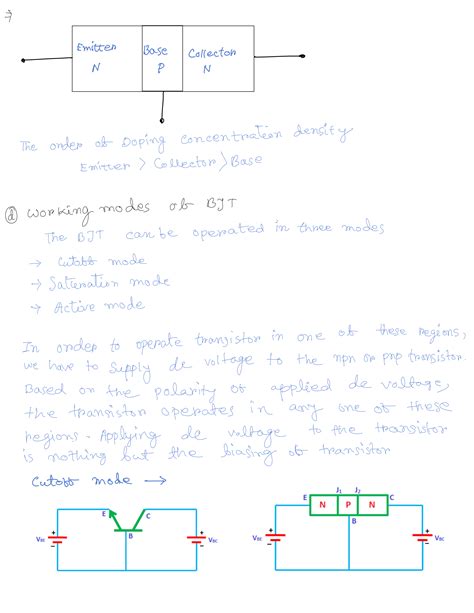 Emitter Base Collector
N P N
The order of Doping concentration density
Emitter > Collector > Base
d working modes of BJT
The BJT can be operated in three modes
→ Cutoff mode
→ Saturation mode
→ Active mode
In order to operate transistor in one of these regions,
we have to supply dc voltage to the npn or pnp transistor.
Based on the polarity of applied dc voltage,
the transistor operates in any one of these
regions. Applying dc voltage to the transistor
is nothing but the biasing of transistor
Cutoff mode →
E C
B
VBE VBC
J1 J2
E N P N C
B
VBC